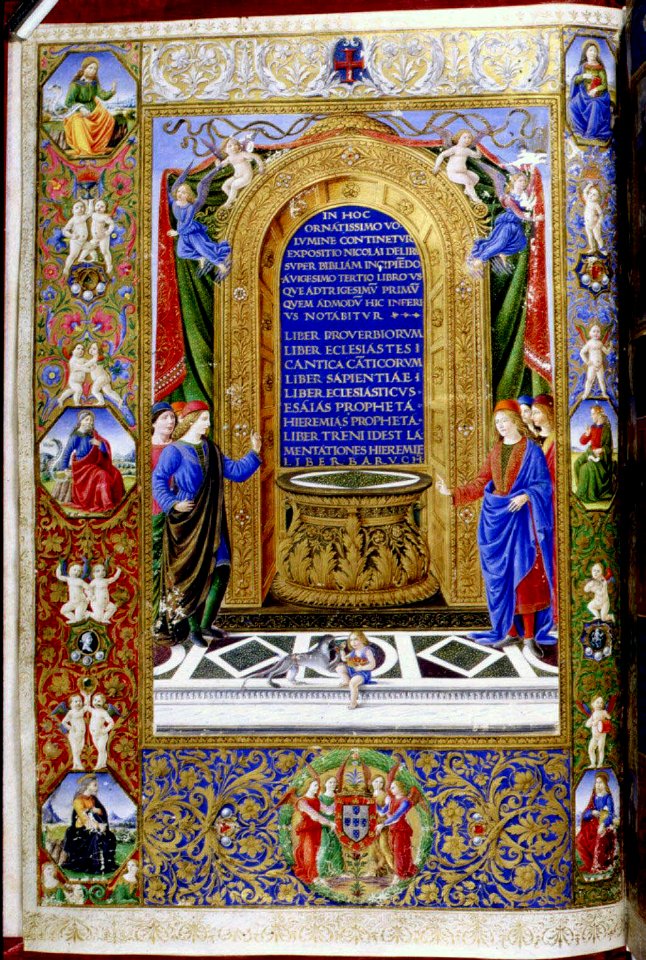 IN HOC
ORNATISSIMO VO
LVMINE CONTINETVR
EXPOSITIO NICOLAI DELIRE
SVPER BIBLIAM INCIPIĒDO
AVIGESIMO TERTIO LIBRO VS
QVE ADTRIGESIMV̄ PRIMV̄
QVEM ADMODV̄ HIC INFERI
VS NOTABITVR
LIBER PROVERBIORVM
LIBER ECCLESIASTES I
CANTICA CĀTICORVM
LIBER SAPIENTIAE I
LIBER ECCLESIASTICVS
ESAIAS PROPHETA
HIEREMIAS PROPHETA
LIBER TRENI IDEST LA
MENTATIONES HIEREMIE
LIBER BARVCH